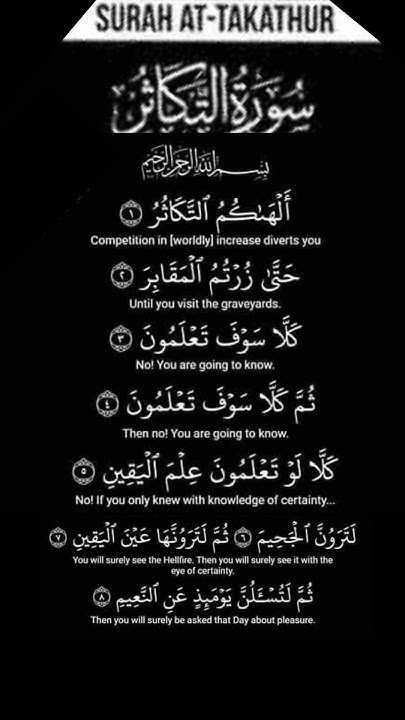 SURAH AT-TAKATHUR
سُورَةُ التَّكَاثُرُ
بِسْمِ اللَّهِ الرَّحْمَٰنِ الرَّحِيمِ
أَلْهَىٰكُمُ ٱلتَّكَاثُرُ ١
Competition in [worldly] increase diverts you
حَتَّىٰ زُرْتُمُ ٱلْمَقَابِرَ ٢
Until you visit the graveyards.
كَلَّا سَوْفَ تَعْلَمُونَ ٣
No! You are going to know.
ثُمَّ كَلَّا سَوْفَ تَعْلَمُونَ ٤
Then no! You are going to know.
كَلَّا لَوْ تَعْلَمُونَ عِلْمَ ٱلْيَقِينِ ٥
No! If you only knew with knowledge of certainty...
لَتَرَوُنَّ ٱلْجَحِيمَ ٦ ثُمَّ لَتَرَوُنَّهَا عَيْنَ ٱلْيَقِينِ ٧
You will surely see the Hellfire. Then you will surely see it with the
eye of certainty.
ثُمَّ لَتُسْـَٔلُنَّ يَوْمَئِذٍ عَنِ ٱلنَّعِيمِ ٨
Then you will surely be asked that Day about pleasure.